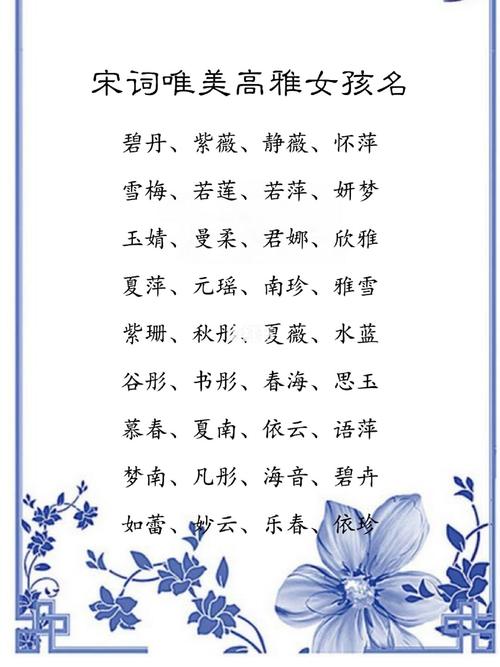 宋词唯美高雅女孩名
碧丹、紫薇、静薇、怀萍
雪梅、若莲、若萍、妍梦
玉婧、曼柔、君娜、欣雅
夏萍、元瑶、南珍、雅雪
紫珊、秋彤、夏薇、水蓝
谷彤、书彤、春海、思玉
慕春、夏南、依云、语萍
梦南、凡彤、海音、碧卉
如蕾、妙云、乐春、依珍